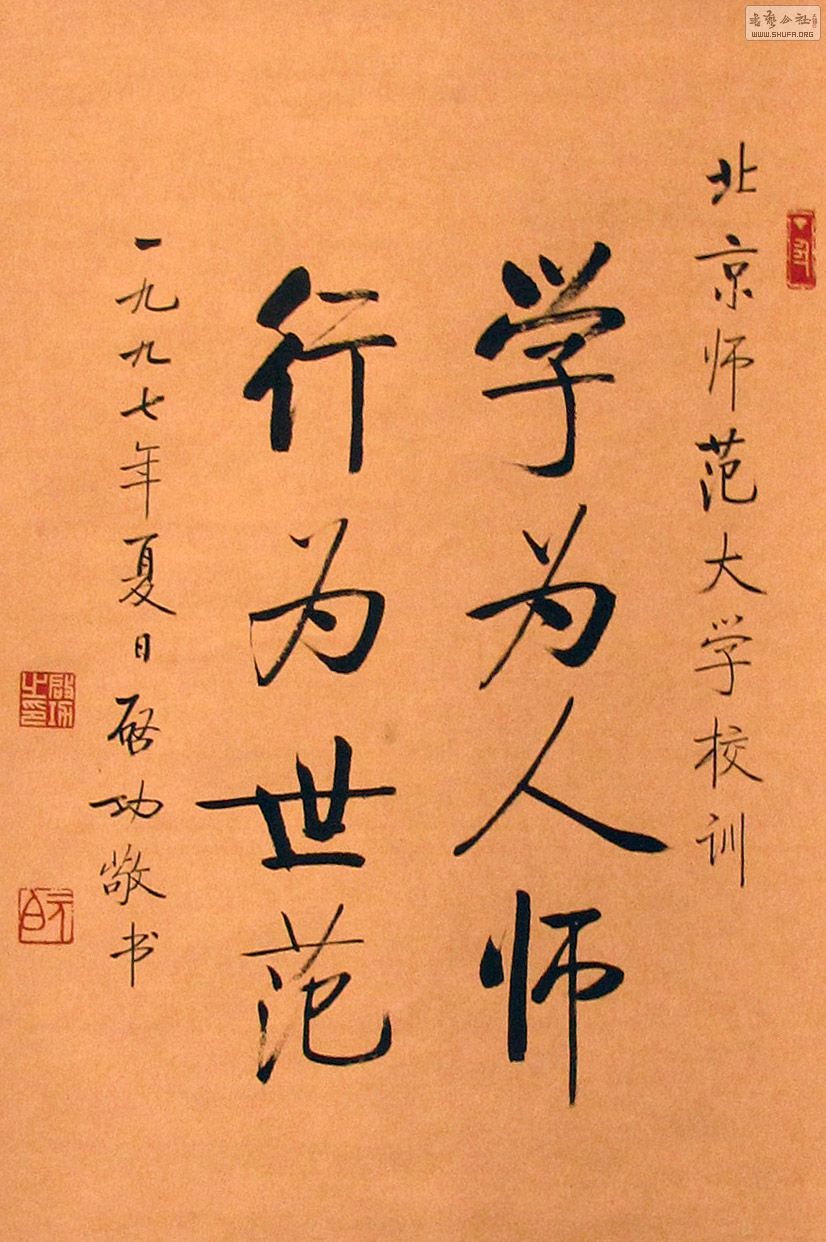 北京师范大学校训
学为人师
行为世范
一九九七年夏日启功敬书
启功之印
元白
书艺公社
WWW.SHUFA.ORG